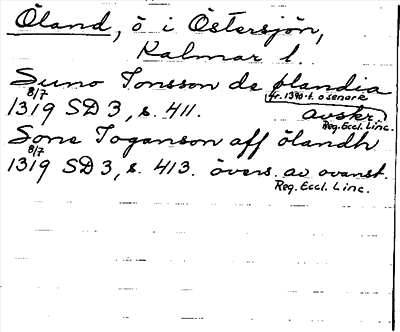 Öland, ö i Östersjön,
Kalmar l.
Suno Jonsson de ølandia
8/7 fr. 1390-t. o senare
1319 SD 3, s. 411. avskr.
Reg. Eccl. Linc.
Sone Joganson aff ölandh
8/7
1319 SD 3, s. 413. övers. av ovanst.
Reg. Eccl. Linc.